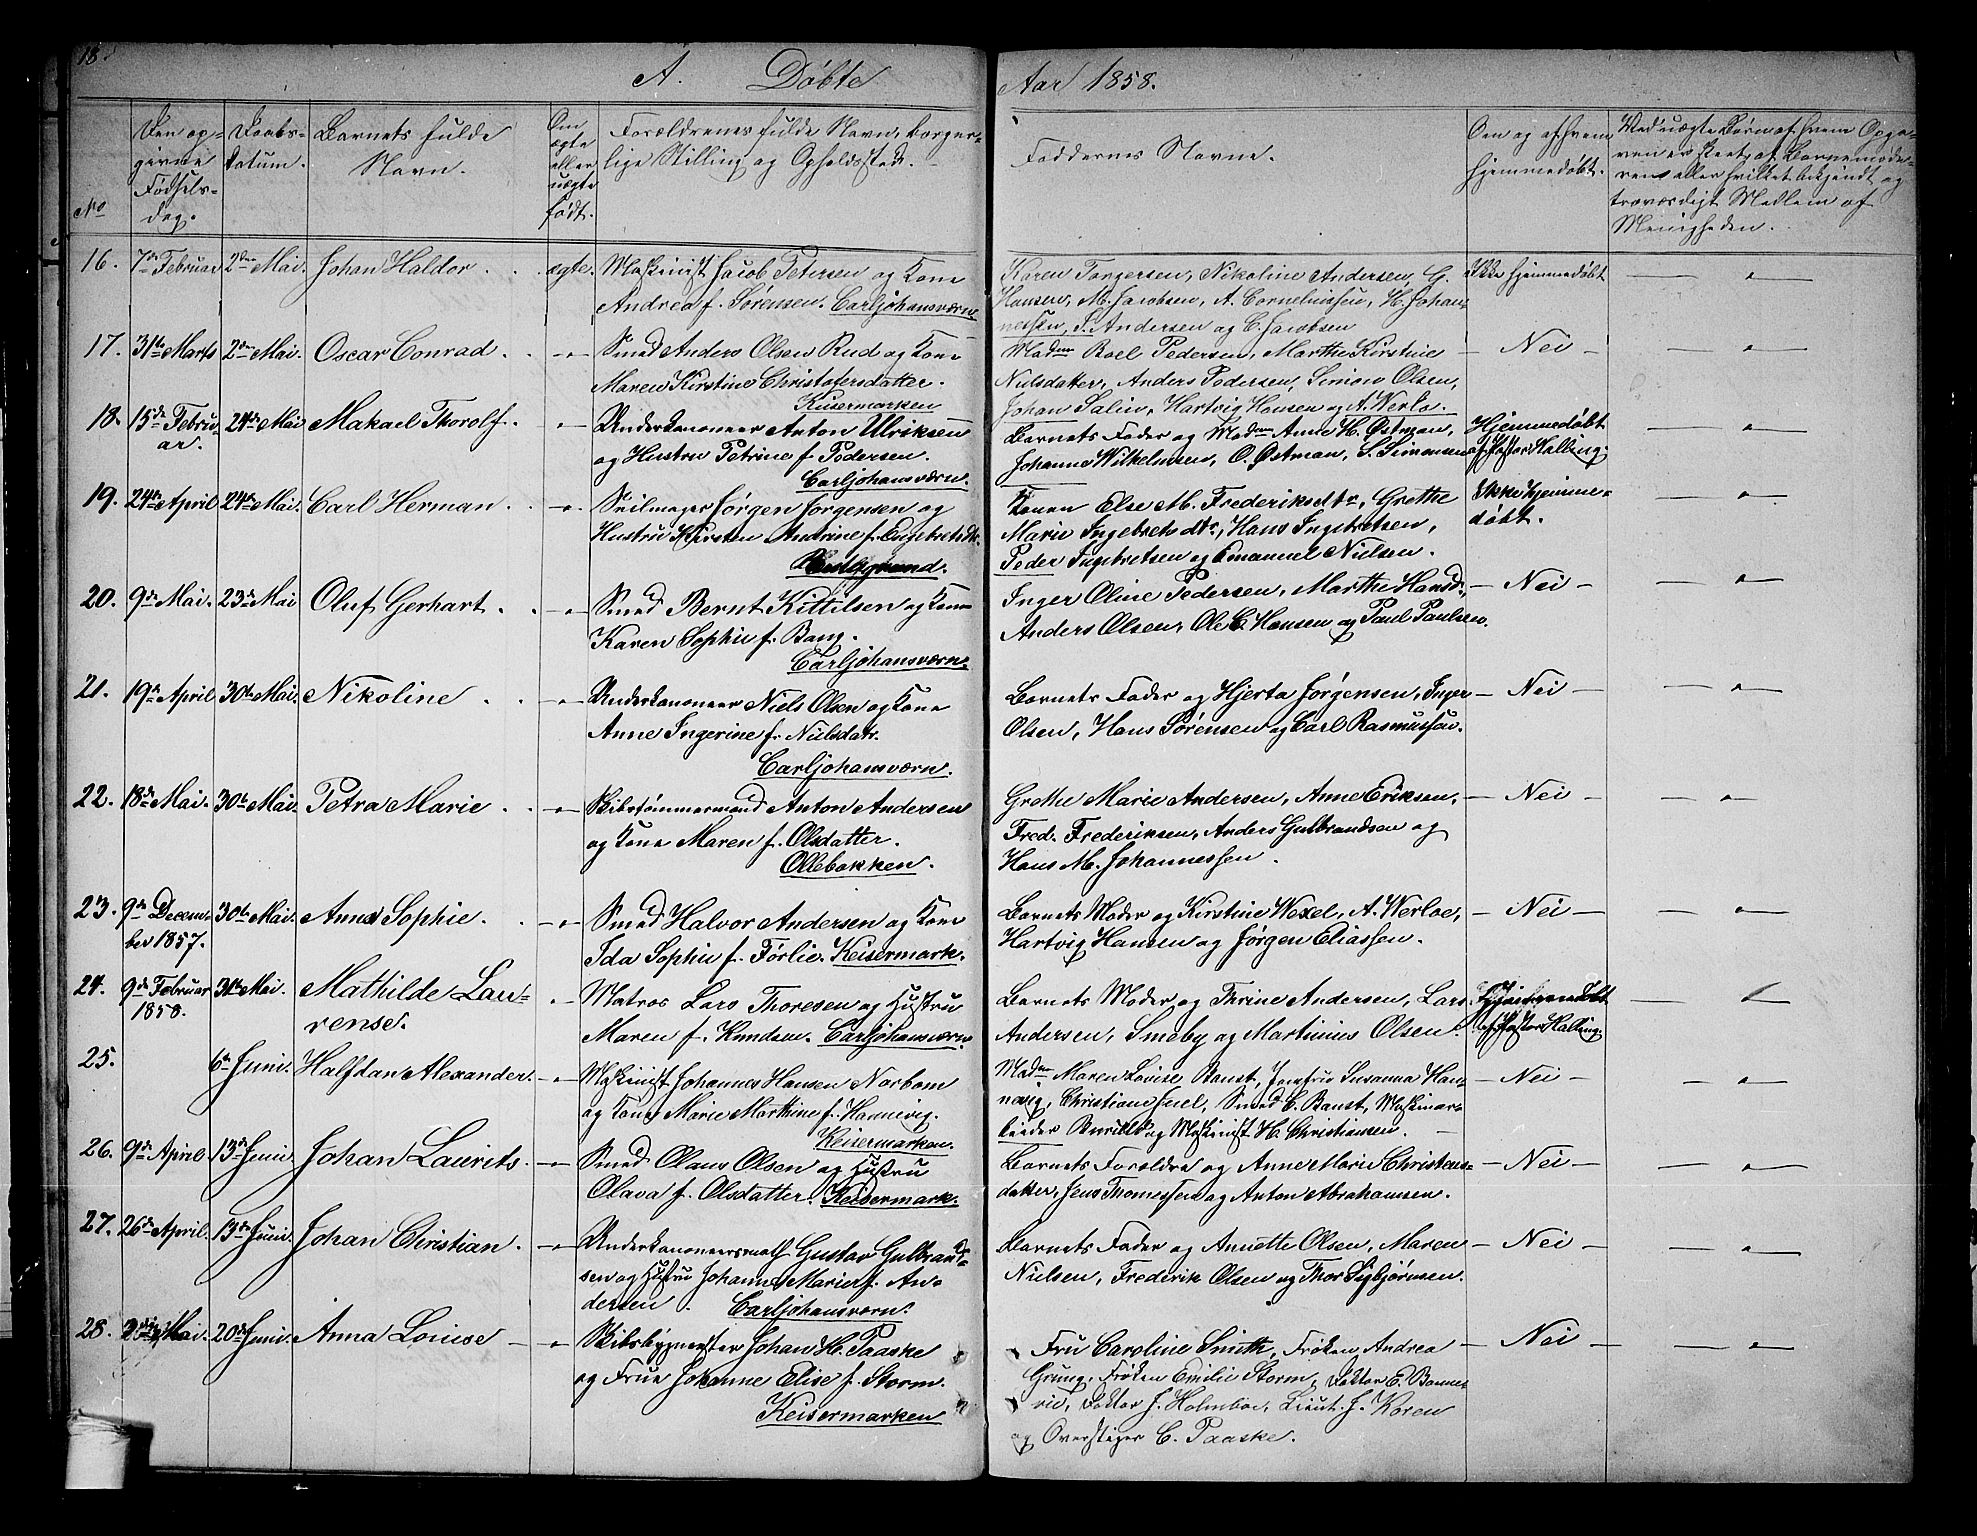 18.
A. Døbte
Aar 1858.
No
Den op-
givne
Fødsels-
dag.
Daabs-
datum.
Barnets fulde
Navn.
Om
ægte
eller
uægte
født.
Forældrenes fulde Navn, borger-
lige Stilling og Opholdssted.
Faddernes Navne.
Om og af hvem
hjemmedøbt.
Ved uægte Børn af hvem Opga-
ven er skeet, af Barnemode-
ren eller hvilket bekjendt og
troværdigt Medlem af
Menigheden.
16. 7de Februar 2den Mai. Johan Haldor. ægte. Maskinist Jacob Petersen og Kone
Andrea f. Sørensen. Carljohansværn.
Karen Torgersen, Nikoline Andersen, G.
Hansen, M. Jacobsen, A. Corneliussen, H. Johan-
nessen, S. Andersen og C. Jacobsen
Ikke hjemmedøbt
17. 31te Marts 2den Mai. Oscar Conrad. Smed Anders Olsen Rud og Kone
Maren Kirstine Christofersdatter.
Keisermarken
Madm Boel Pedersen, Marthe Kirstine
Nielsdatter, Anders Pedersen, Simon Olsen,
Johan Salin, Hartvig Hansen og A. Werlo.
Nei
18. 15de Febru-
ar. 24de Mai Makael Thorolf. Underkanoneer Anton Ulriksen
og Hustru Petrine f. Pedersen.
Carljohansværn.
Barnets Fader og Madm Anne H. Østman,
Johanne Wilhelmsen, O. Østman, S. Simonsen
Hjemmedøbt
af Pastor Halling.
19. 24de April 24de Mai. Carl Herman. Seilmager Jørgen Jørgensen og
Hustru Kirsten Andrine f. Engebretsdtr.
Konen Else M. Frederiksdtr, Grethe
Marie Ingebretsdtr, Hans Ingebretsen,
Peder Ingebretsen og Emanuel Nielsen.
Ikke hjemme-
døbt.
20. 9de Mai. 23de Mai Oluf Gerhart. Smed Bernt Kittilsen og Kone
Karen Sophie f. Bang.
Carljohansværn.
Inger Oline Pedersen, Marthe Hansd.,
Anders Olsen, Ole C. Hansen og Paul Paulsen.
Nei
21. 19de April 30te Mai. Nikoline. Underkanoneer Niels Olsen og Kone
Anne Ingerine f. Nielsdatr.
Carljohansværn.
Barnets Fader og Hjerta Jørgensen, Inger
Olsen, Hans Sørensen og Carl Rasmussen.
Nei
22. 18de Mai. 30te Mai. Petra Marie. Skibstømmermand Anton Andersen
og Kone Maren f. Olsdatter.
Ollebakken.
Grethe Marie Andersen, Anne Eriksen,
Fred. Frederiksen, Anders Gulbrandsen og
Hans M. Johannessen.
Nei
23. 9de Decem-
ber 1857. 30te Mai. Anna Sophie. Smed Halvor Andersen og Kone
Ida Sophie f. Førlie. Keisermark.
Barnets Moder og Kirstine Wexel, A. Werloe,
Hartvig Hansen og Jørgen Eliassen.
Nei
24. 9de Februar
1858. 31te Mai. Mathilde Lau-
rense. Matros Lars Thoresen og Hustru
Maren f. Knudsen. Carljohansværn.
Barnets Moder og Thrine Andersen, Lars
Andersen, Smeby og Martinius Olsen.
Hjemmedøbt
af Pastor Halling.
25. 6te Juni. Halfdan Alexander. Maskinist Johannes Hansen Norbom
og Kone Marie Marthine f. Hannevig.
Keisermarken.
Madm Maren Lovise Baust, Jomfru Susanna Han-
nevig, Christiane Juel, Smed C. Baust, Maskinar-
beider og Maskinist H. Christiansen.
Nei
26. 9de April 13de Juni. Johan Laurits. Smed Olaus Olsen og Hustru
Olava f. Olsdatter. Keisermark.
Barnets Forældre og Anne Marie Christens-
datter, Jens Thomessen og Anton Abrahamsen.
Nei
27. 26de April. 13de Juni. Johan Christian. Underkanoneersmath Gustav Gulbrand-
sen og Hustru Johanne Marie f. An-
dersen. Carljohansværn.
Barnets Fader og Annette Olsen, Maren
Nielsen, Frederik Olsen og Thor Sigbjørnsen.
Nei
28. Mai. 20de Juni. Anna Louise Skibsbygmester Johan H. Paaske
og Frue Johanne Elise f. Storm.
Keisermarken
Fru Caroline Smith, Frøken Andrea
Grung, Frøken Emilie Storm, Doktor E. Bonne-
vie, Doktor J. Holmboe, Lieut. J. Koren
og Overstiger C. Paaske.
Nei